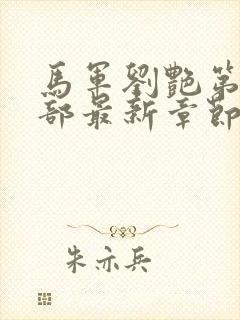 馬軍劉艷第
部最新章節
朱亦兵